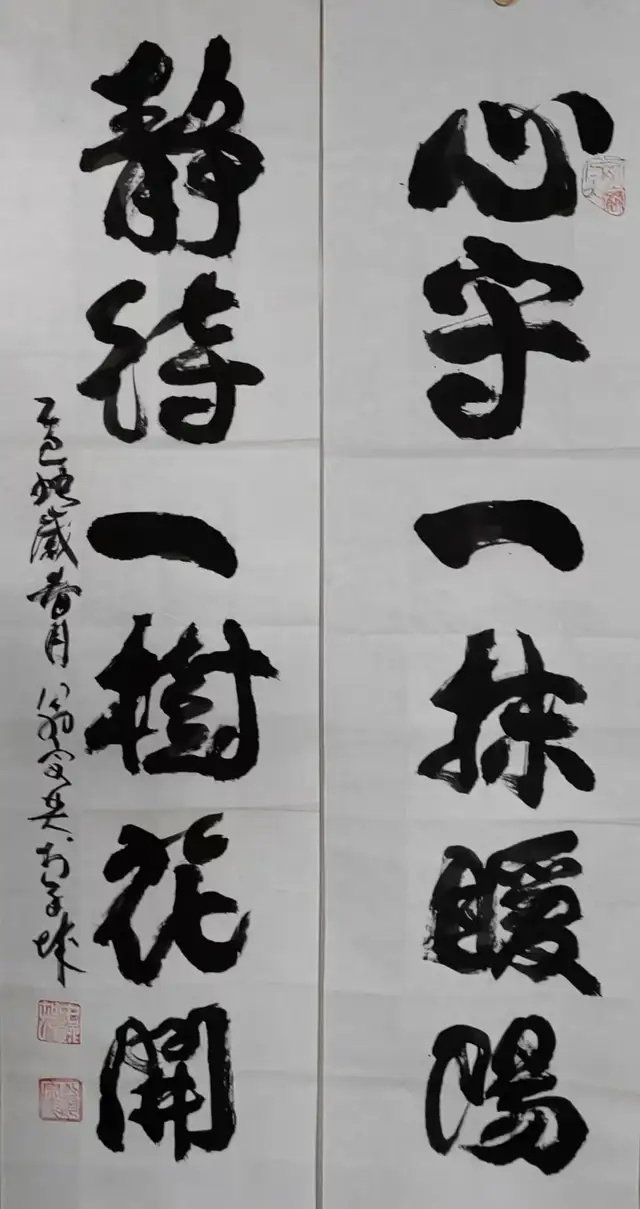 心守一抹暖陽
静待一樹花開
乙巳蛇歲春月